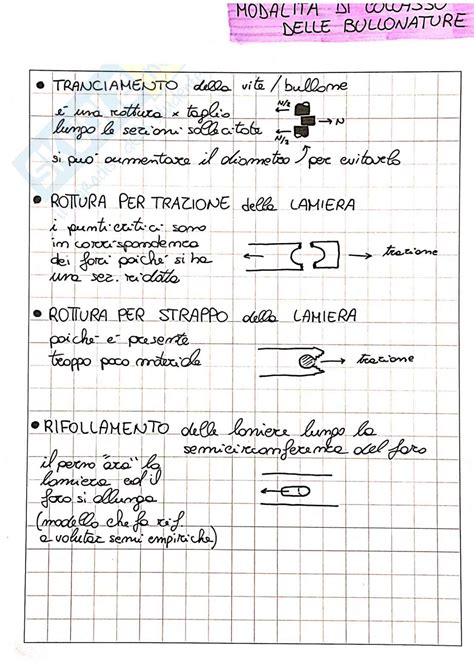 MODALITÀ DI COLLASSO
DELLE BULLONATURE
• TRANCIAMENTO della vite / bullone
é una rottura x taglio
lungo le sezioni sollecitate
N/2
N/2
→ N
si puó aumentare il diametro per evitarlo
• ROTTURA PER TRAZIONE della LAMIERA
i punti critici sono
in corrispondenza
dei fori poiché si ha
una sez. ridotta
→ trazione
• ROTTURA PER STRAPPO della LAMIERA
poiché é presente
troppo poco materiale
→ trazione
• RIFOLLAMENTO delle lamiere lungo la
semicirconferenza del foro
il perno "ara" la
lamiera ed il
foro si allunga
(modello che fa rif.
a valutaz semi empiriche)